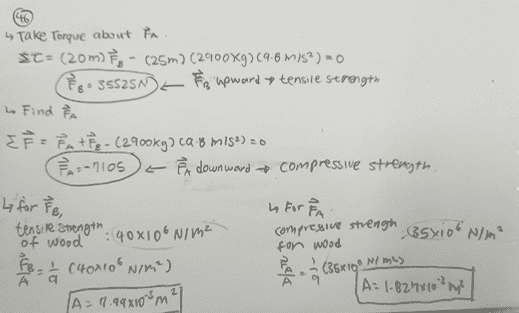 46
↳ Take Torque about F⃗A.
Στ = (20m) F⃗B - (25m) (2900kg) (9.8 m/s²) = 0
F⃗B = 35525N ← F⃗B upward → tensile strength
↳ Find F⃗A
ΣF⃗ = F⃗A + F⃗B - (2900kg) (9.8 m/s²) = 0
F⃗A = -7105 ← F⃗A downward → compressive strength.
↳ for F⃗B,
tensile strength of wood : 40×10⁶ N/m²
F⃗B/A = 1/9 (40×10⁶ N/m²)
A = 7.99×10⁻³ m²
↳ For F⃗A
compressive strength for wood : 35×10⁶ N/m²
F⃗A/A = 1/9 (35×10⁶ N/m²)
A = 1.827×10⁻³ m²